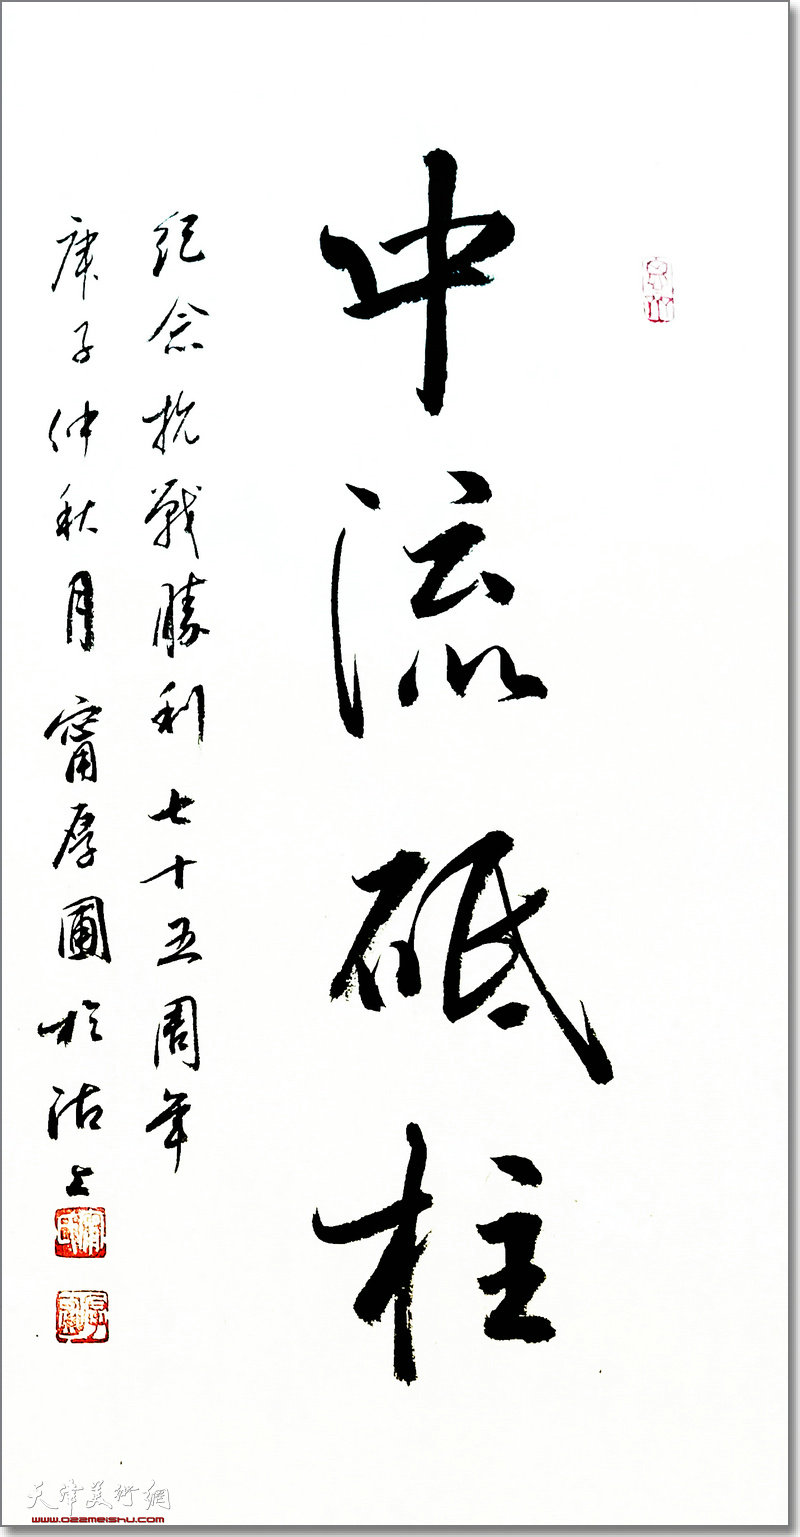 中流砥柱
紀念抗戰勝利七十五周年
庚子仲秋月甯厚圃於沽上
天津美術網
www.022meishu.com